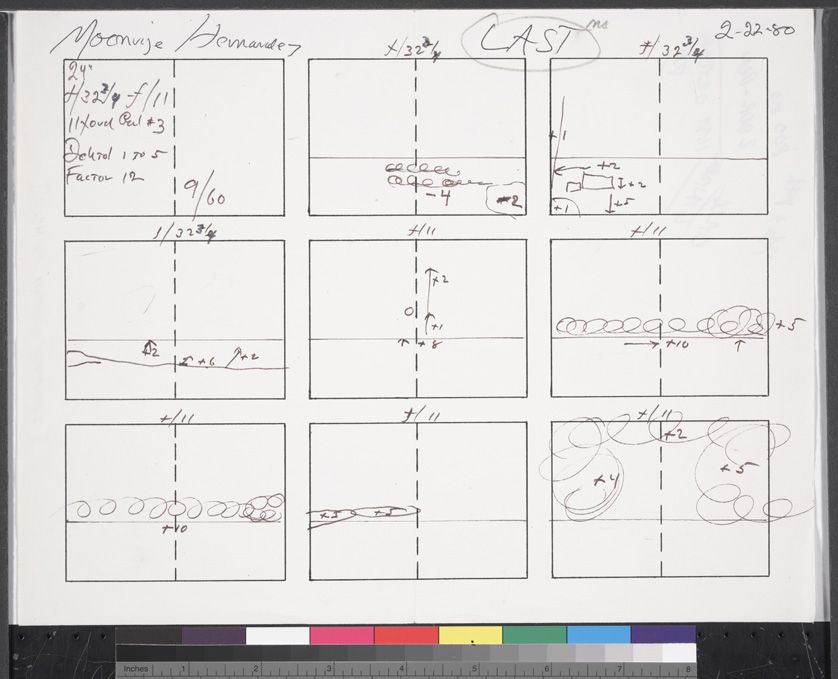 Moonrise Hernandez
LAST
2-22-80
24"
f/32 3/4 - f/11
#3
Dektol 1 to 5
Factor 12
9/60
f/32 3/4
-4
-2
f/32 3/4
+1
+2
+2
+5
+1
f/32 3/4
+2
+6
+2
f/11
+2
0
+1
+8
f/11
+5
+10
f/11
+10
f/11
+5
+5
f/11
+2
+4
+5
Inches
1
2
3
4
5
6
7
8